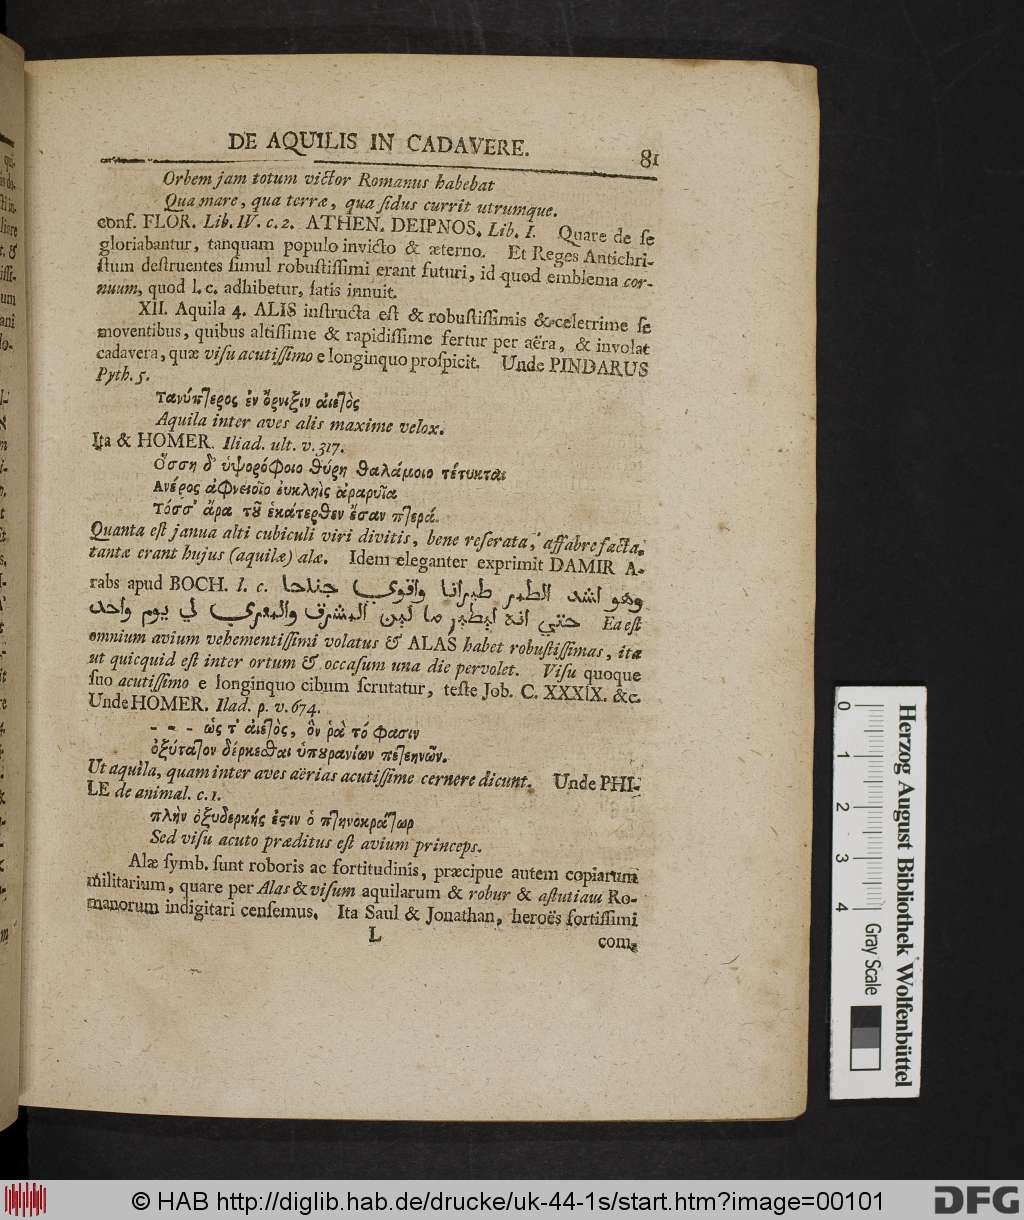 DE AQUILIS IN CADAVERE. 81
Orbem jam totum victor Romanus habebat
Qua mare, qua terræ, qua ſidus currit utrumque.
conf. FLOR. Lib. IV. c. 2. ATHEN. DEIPNOS. Lib. I. Quare de ſe
gloriabantur, tanquam populo invicto & æterno. Et Reges Antichri-
ſtum deſtruentes ſimul robuſtiſſimi erant futuri, id quod emblema cor-
nuum, quod l. c. adhibetur, ſatis innuit.
XII. Aquila 4. ALIS inſtructa eſt & robuſtiſſimis & celerrime ſe
moventibus, quibus altiſſime & rapidiſſime fertur per aëra, & involat
cadavera, quæ viſu acutiſſimo e longinquo proſpicit. Unde PINDARUS
Pyth. 5.
Τανύπτερος ἐν ὄρνιξιν ἀιετὸς
Aquila inter aves alis maxime velox.
Ita & HOMER. Iliad. ult. v. 317.
Ὅσση δ' ὑψορόφοιο θύρη θαλάμοιο τέτυκται
Ανέρος ἀφνειοῖο ἐυκληὶς ἀραρυῖα
Τόσσ' ἄρα τȣ̃ ἑκάτερθεν ἔσαν πτερά.
Quanta eſt janua alti cubiculi viri divitis, bene reſerata, affabre facta,
tantæ erant hujus (aquilæ) alæ. Idem eleganter exprimit DAMIR A-
rabs apud BOCH. l. c. وهو اشد الطير طيرانا واقوي جناحا
حتي انه ليطير ما لبن المشرق والمغرب في يوم واحد Ea eſt
omnium avium vehementiſſimi volatus & ALAS habet robuſtiſſimas, ita
ut quicquid eſt inter ortum & occaſum una die pervolet. Viſu quoque
ſuo acutiſſimo e longinquo cibum ſcrutatur, teſte Job. C. XXXIX. &c.
Unde HOMER. Ilad. ρ. v. 674.
- - - ὡς τ' ἀιετὸς, ὃν ῥὰ τό φασιν
ὀξύτατον δέρκεσθαι ὑπȣρανίων πετεηνῶν.
Ut aquila, quam inter aves aërias acutiſſime cernere dicunt. Unde PHI-
LE de animal. c. 1.
πλὴν ὀξυδερκής ἐστιν ὁ πτηνοκράτωρ
Sed viſu acuto præditus eſt avium princeps.
Alæ ſymb. ſunt roboris ac fortitudinis, præcipue autem copiarum
militarium, quare per Alas & viſum aquilarum & robur & aſtutiam Ro-
manorum indigitari cenſemus. Ita Saul & Jonathan, heroës fortiſſimi
L com-
0 1 2 3 4
Gray Scale
Herzog August Bibliothek Wolfenbüttel
© HAB http://diglib.hab.de/drucke/uk-44-1s/start.htm?image=00101
DFG